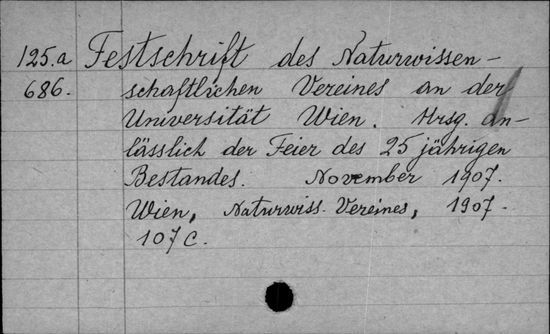 125.a Festschrift des Naturwissen-
686. schaftlichen Vereines an der
Universität Wien. Hrsg. an-
lässlich der Feier des 25 jährigen
Bestandes. November 1907.
Wien, Naturwiss. Vereines, 1907.
107 C.